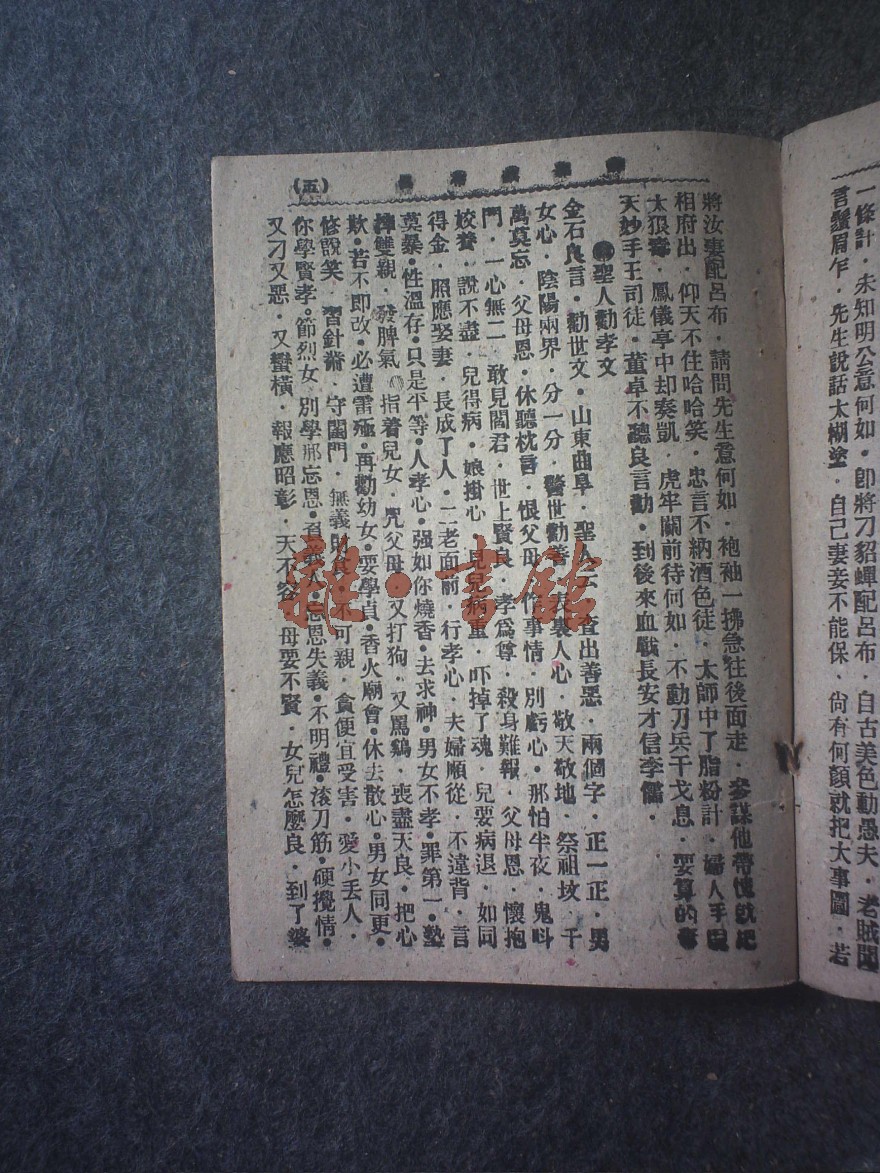 一條計．未知明公意何如．卽將刀貂蟬配呂布．自古美色動愚夫．老賊聞
言鬚眉乍．先生說話太糊塗．自己妻妾不能保．尙有何顏就把大事圖．若
(五)
將汝妻配呂布．請問先生意何如．袍袖一拂急往後面走．參謀他帶愧就把
相府出．仰天不住哈哈笑．忠言不納酒色徒．太師中了脂粉計．婦人手
太狠毒．鳳儀亭中却奏凱．虎牢關前待何如．不動刀兵干戈息．要算的
天妙手王司徒．董卓不聽良言勸．到後來血戰長安才信李儒．
聖人勸孝文
金石良言．勸世文．山東曲阜．聖人云．查出善惡．兩個字．正一正．男
女心．陰陽兩界．分一分．醫世勸善．表裏人心．敬天敬地．祭祖墳．千
萬莫忘．父母恩．休聽枕言．恨父母．作事情．別虧心．那怕半夜．鬼叫
門．一心無二．敢見閻君．世上賢良．孝爲尊．殺身難報．父母恩．懷抱
姣養．說不盡．兒得病．娘掛心．見兒病重．吓掉了魂．兒要病退．如同
得金．照應娶妻．長成了人．二老面前．行孝心．夫婦順從．不違背．言
莫暴．性溫存．只是平等．人孝心．强如你燒香．去求神．男女不孝．罪第一．
雙親．發脾氣．指着兒女．咒父母．又打狗．又罵鷄．喪盡天良．把心
欺．若不卽改．必遭雷殛．再勸幼女．要學貞．香火廟會．休去散心．男女同更．
修說笑．習針黹．守閨門．無義財食．不可親．貪便宜受害．愛小丢人．
你學賢孝．節烈女．別學那忘恩．負義人．忘恩失義．不明禮．滾刀筋．硬攪情．
又刁又惡．又蠻橫．報應昭彰．天不容．母要不賢．女兒怎麼良．到了婆
龍·書館